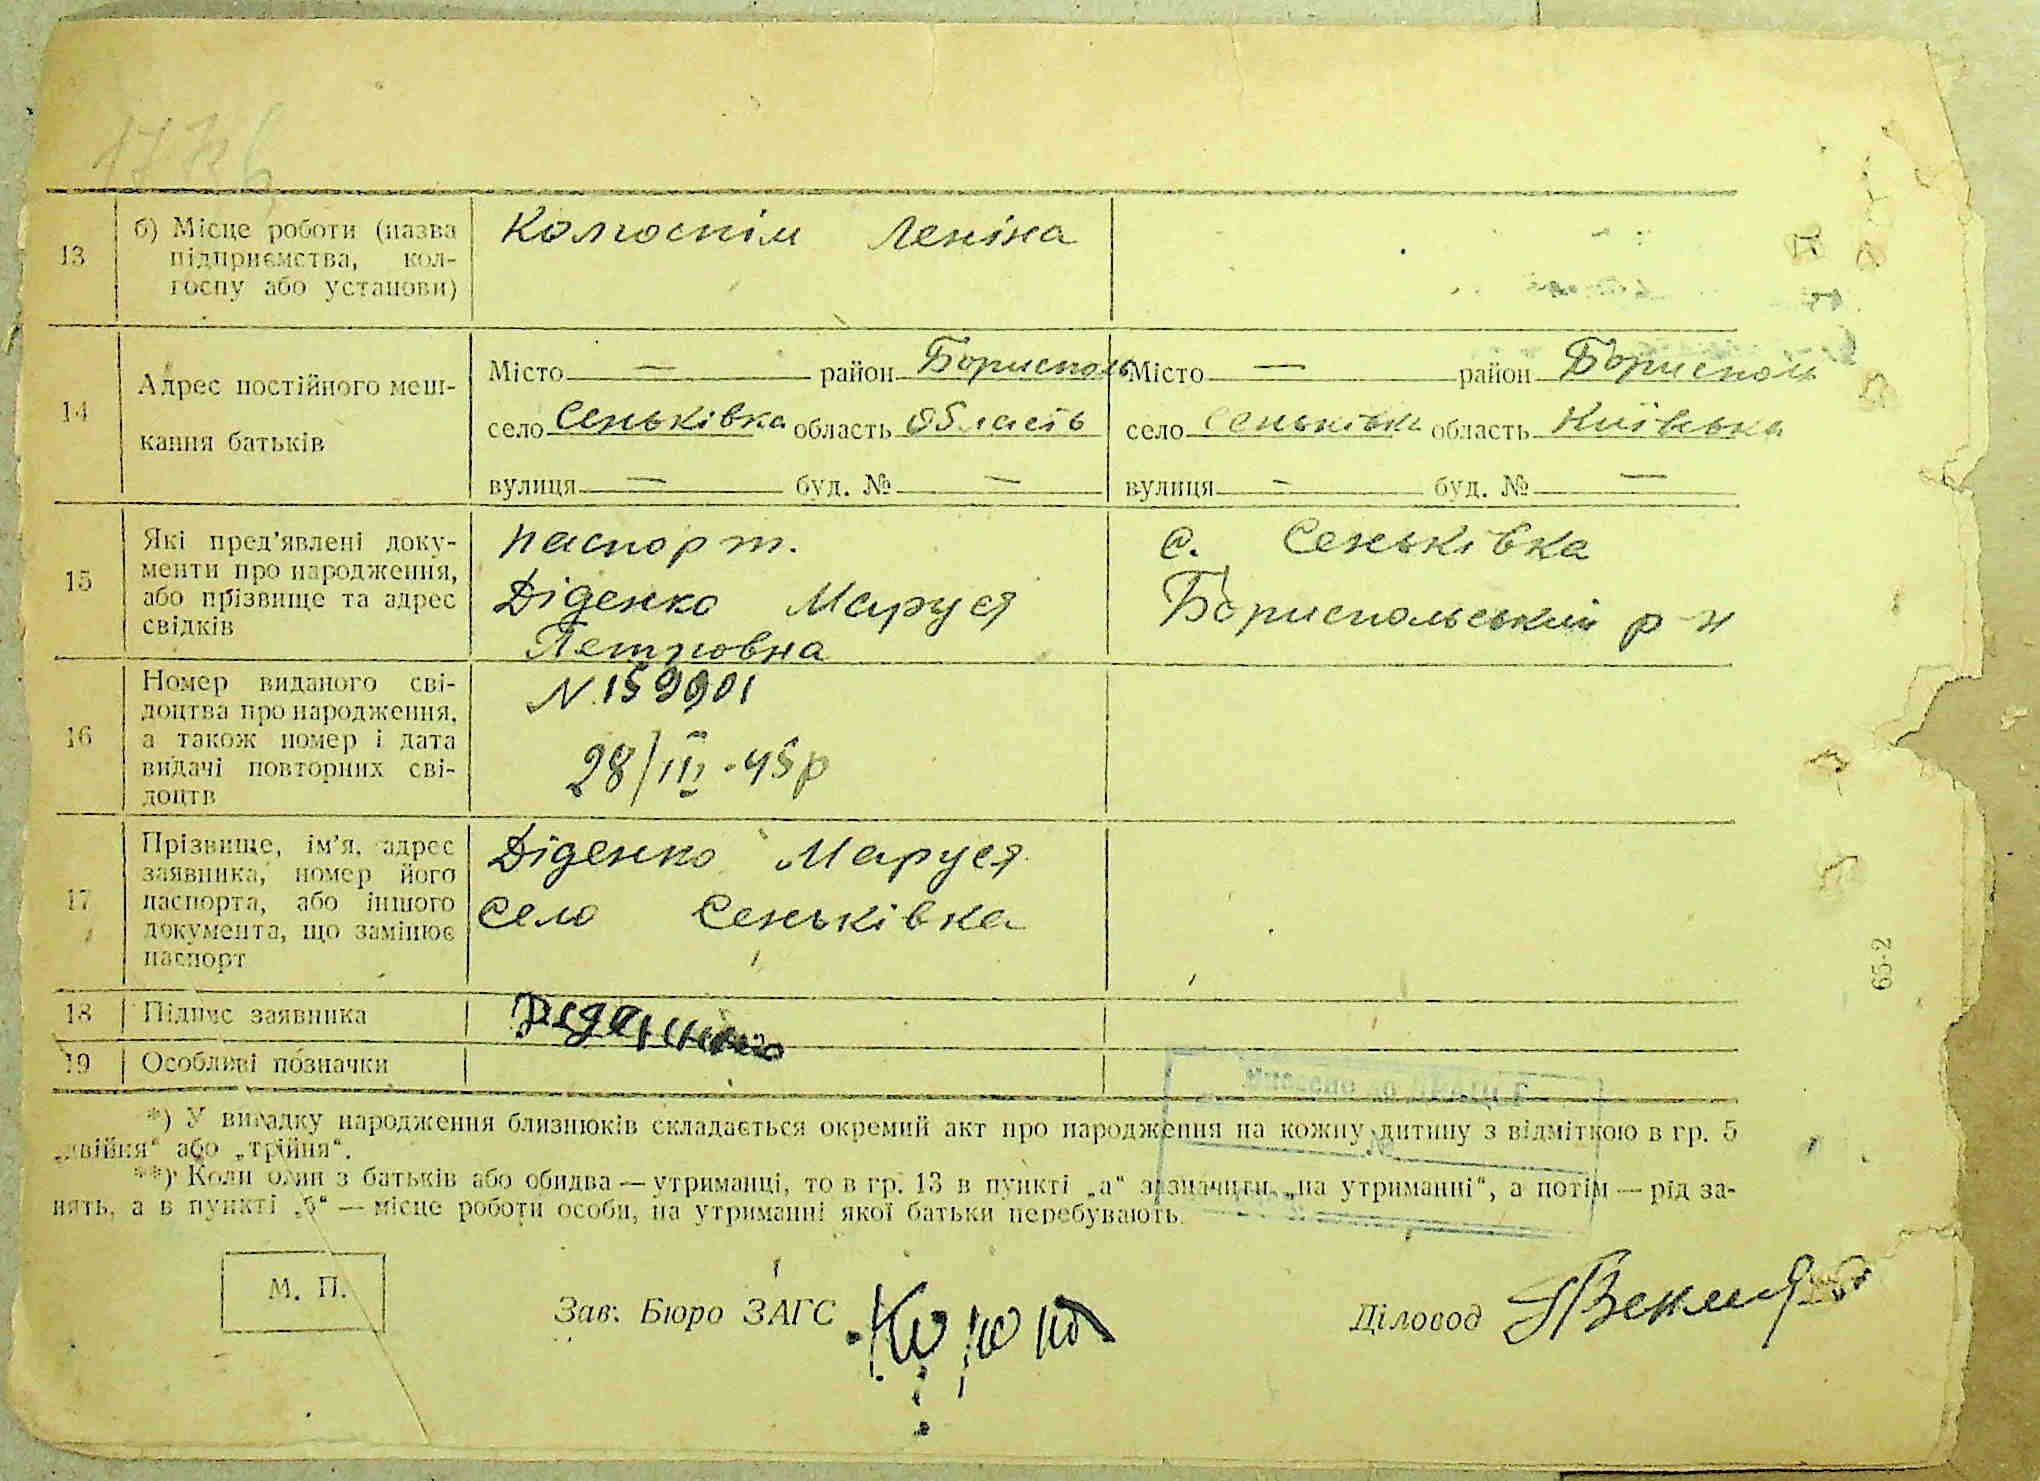 13 б) Місце роботи (назва підприємства, колгоспу або установи) Колгоспім Леніна
14 Адрес постійного мешкання батьків
Місто — район Бориспол Місто — район Бориспол
село Сеньківка область область село Сеньківка область Київська
вулиця — буд. № — вулиця — буд. № —
15 Які пред'явлені документи про народження, або прізвище та адрес свідків
паспорт. с. Сеньківка
Діденко Маруся Бориспольський р-н
Петровна
16 Номер виданого свідоцтва про народження, а також номер і дата видачі повторних свідоцтв
N 159901
28/III-45р
17 Прізвище, ім'я, адрес заявника, номер його паспорта, або іншого документа, що замінює паспорт
Діденко Маруся
село Сеньківка
18 Підпис заявника
19 Особливі позначки
*) У випадку народження близнюків складається окремий акт про народження на кожну дитину з відміткою в гр. 5
„двійня“ або „трійня“.
**) Коли один з батьків або обидва — утриманці, то в гр. 13 в пункті „а“ зазначити „на утриманні“, а потім — рід за-
нять, а в пункті „б“ — місце роботи особи, на утриманні якої батьки перебувають.
М. П.
Зав. Бюро ЗАГС
Діловод
65-2